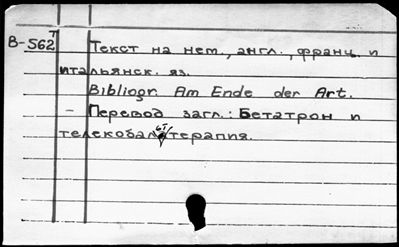 В-562т Текст на нем., англ., франц. и
итальянск. яз.
Bibliogr. Am Ende der Art.
- Перевод загл.: Бетатрон и
телекобальттерапия.